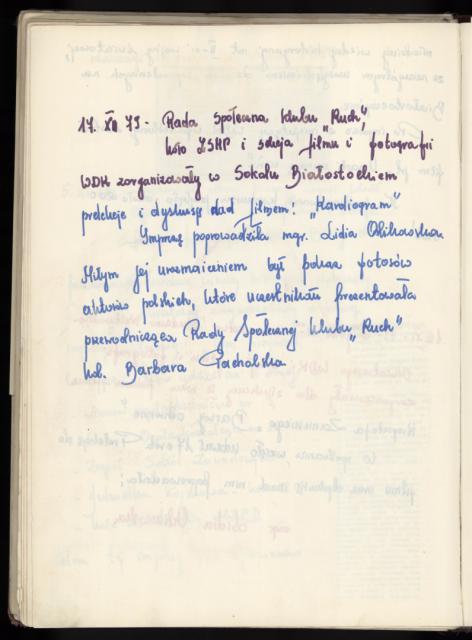 17. XII 73. Rada Społeczna klubu „Ruch”,
koło ZSMP i sekcja filmu i fotografii
WDK zorganizowały w Sokołu Białostockiem
prelekcję i dyskusję nad filmem: „Kardiogram”
Imprezę poprowadziła mgr. Lidia
Miłym jej urozmaiceniem był pokaz fotosów
aktorów polskich, które uczestnikom prezentowała
przewodnicząca Rady Społecznej klubu „Ruch”
kol. Barbara Pachalska